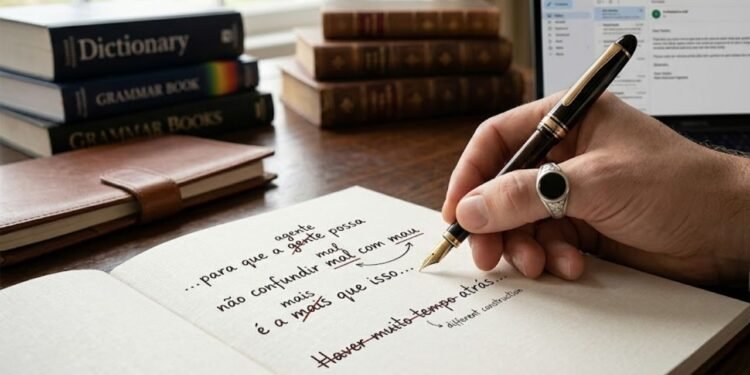 Dictionary
GRAMMAR BOOK
GRAMMAR BOOKS
agente
...para que a gente possa
mal
não confundir mal com mau
mais
é a mais que isso...
Haver muito tempo atrás...
different construction